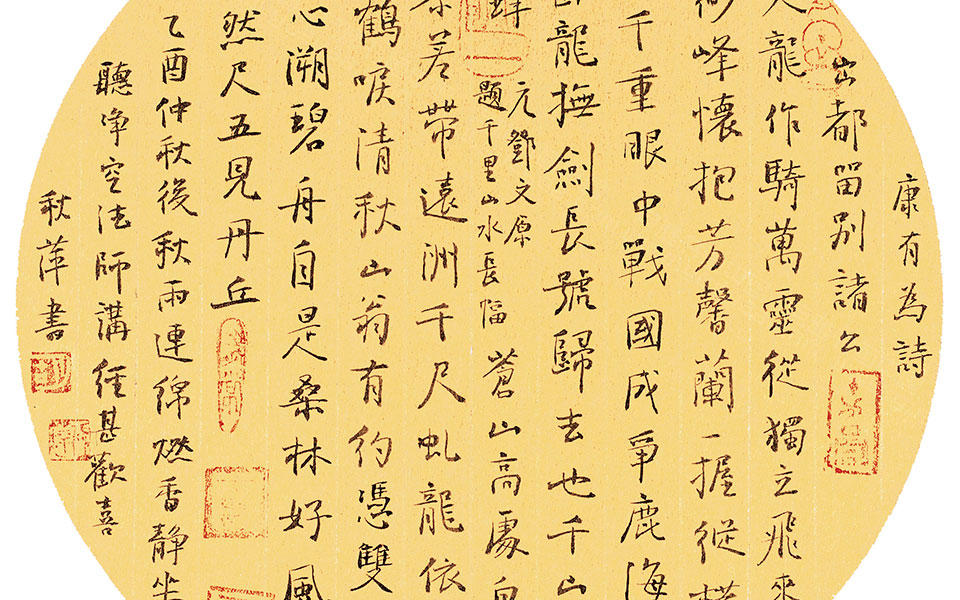 康有為詩
出都留別諸公
天龍作騎萬靈從獨立飛來
峰懷抱芳馨蘭一握縱橫
千重眼中戰國成爭鹿海
臥龍撫劍長號歸去也千山
鋒
元鄧文原
題千里山水長幅
蒼山高處白
差帶遠洲千尺虬龍依
鶴唳清秋山翁有約憑雙
心溯碧舟自是桑林好風
然尺五見丹丘
乙酉仲秋後秋雨連綿燃香靜坐
聽淨空法師講經甚歡喜
秋萍書